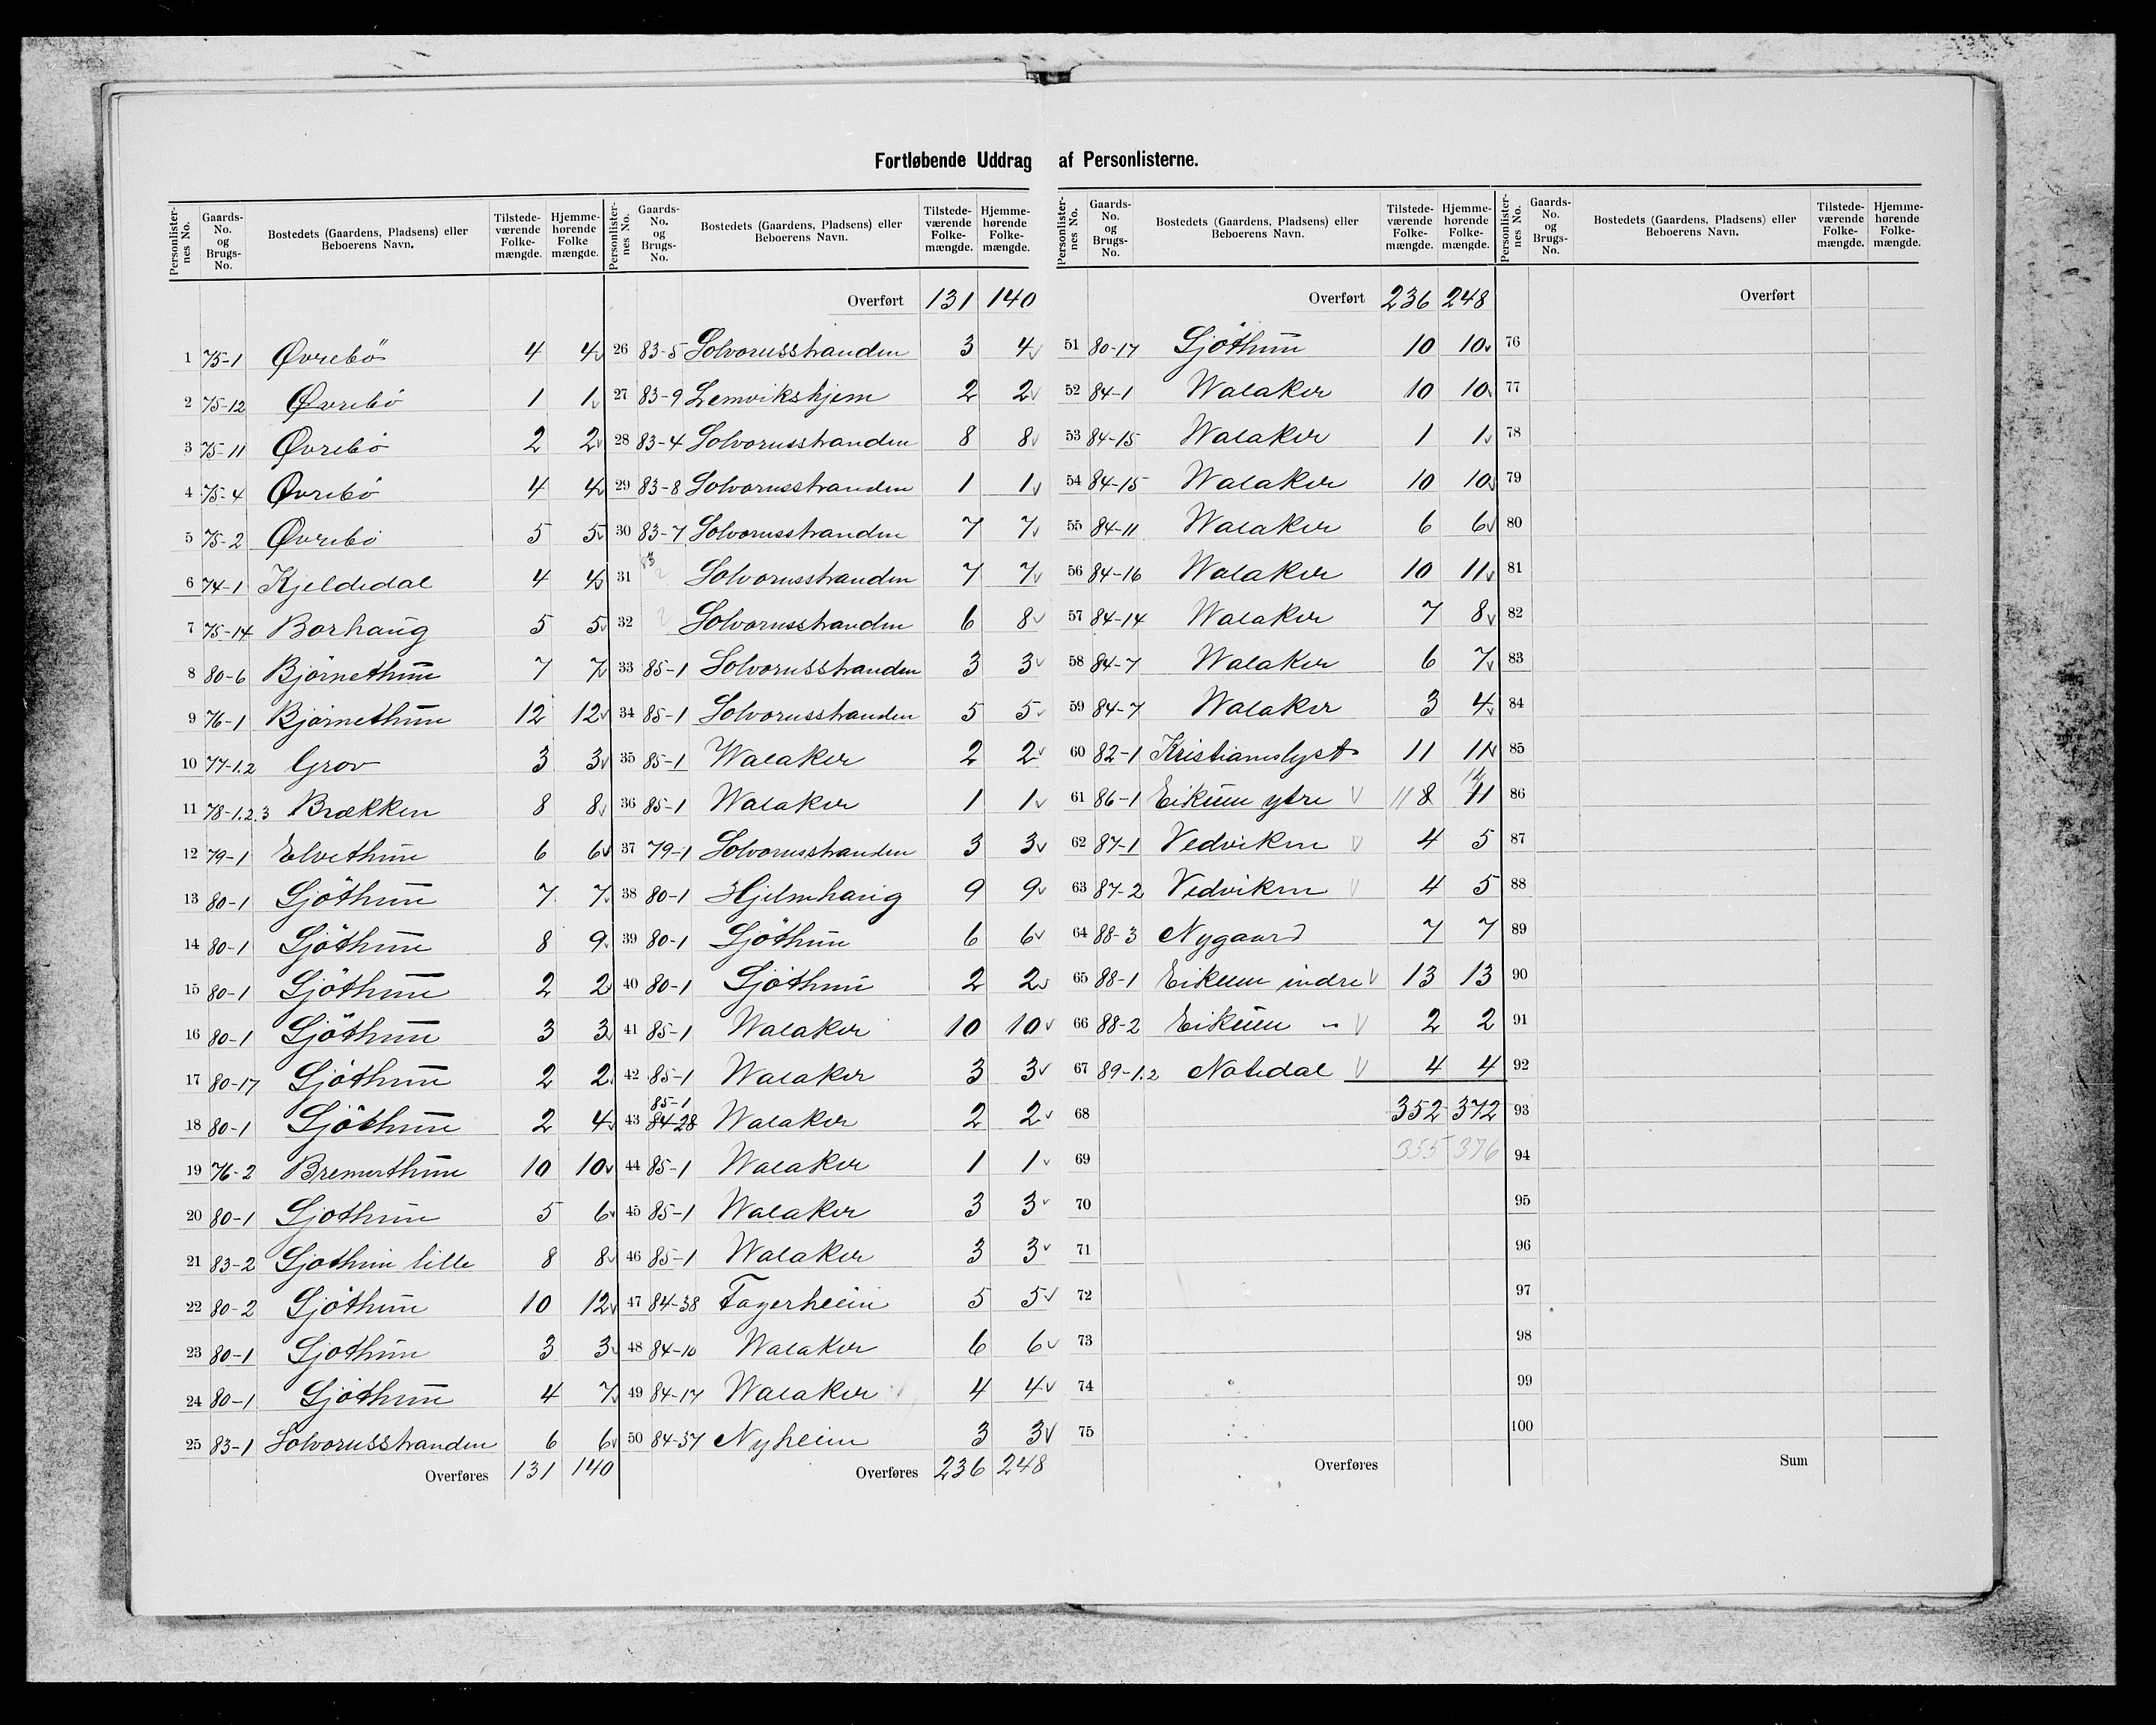 Fortløbende Uddrag af Personlisterne.
Personlisternes No. Gaards-No. og Brugs-No. Bostedets (Gaardens, Pladsens) eller Beboerens Navn. Tilstedeværende Folkemængde. Hjemmehørende Folkemængde.
1 75-1 Øvrebö 4 4
2 75-12 Øvrebö 1 1
3 75-11 Øvrebö 2 2
4 75-4 Øvrebö 4 4
5 75-2 Øvrebö 5 5
6 74-1 Kjeldedal 4 4
7 75-14 Borhaug 5 5
8 80-6 Björnethun 7 7
9 76-1 Björnethun 12 12
10 77-1.2 Grov 3 3
11 78-1.2.3 Brækken 8 8
12 79-1 Elvethun 6 6
13 80-1 Sjöthun 7 7
14 80-1 Sjöthun 8 9
15 80-1 Sjöthun 2 2
16 80-1 Sjöthun 3 3
17 80-17 Sjöthun 2 2
18 80-1 Sjöthun 2 4
19 76-2 Bremerthun 10 10
20 80-1 Sjothun 5 6
21 83-2 Sjothun lille 8 8
22 80-2 Sjöthun 10 12
23 80-1 Sjothun 3 3
24 80-1 Sjöthun 4 7
25 83-1 Solvorusstranden 6 6
Overføres 131 140
Personlisternes No. Gaards-No. og Brugs-No. Bostedets (Gaardens, Pladsens) eller Beboerens Navn. Tilstedeværende Folkemængde. Hjemmehørende Folkemængde.
Overført 131 140
26 83-5 Solvorusstranden 3 4
27 83-9 Lemvikshjem 2 2
28 83-4 Solvorusstranden 8 8
29 83-8 Solvorusstranden 1 1
30 83-7 Solvorusstranden 7 7
31 83 ? Solvorusstranden 7 7
32 ? Solvorusstranden 6 8
33 85-1 Solvorusstranden 3 3
34 85-1 Solvorusstranden 5 5
35 85-1 Walaker 2 2
36 85-1 Walaker 1 1
37 79-1 Solvorusstranden 3 3
38 80-1 Hjelmhaug 9 9
39 80-1 Sjöthun 6 6
40 80-1 Sjöthun 2 2
41 85-1 Walaker 10 10
42 85-1 Walaker 3 3
85-1
43 84-28 Walaker 2 2
44 85-1 Walaker 1 1
45 85-1 Walaker 3 3
46 85-1 Walaker 3 3
47 84-38 Fagerheim 5 5
48 84-10 Walaker 6 6
49 84-17 Walaker 4 4
50 84-37 Nyheim 3 3
Overføres 236 248
Personlisternes No. Gaards-No. og Brugs-No. Bostedets (Gaardens, Pladsens) eller Beboerens Navn. Tilstedeværende Folkemængde. Hjemmehørende Folkemængde.
Overført 236 248
51 80-17 Sjöthun 10 10
52 84-1 Walaker 10 10
53 84-15 Walaker 1 1
54 84-15 Walaker 10 10
55 84-11 Walaker 6 6
56 84-16 Walaker 10 11
57 84-14 Walaker 7 8
58 84-7 Walaker 6 7
59 84-7 Walaker 3 4
60 82-1 Kristianslyst 11 11
61 86-1 Eikum ytre 11 8 11
62 87-1 Vedviken 4 5
63 87-2 Vedviken 4 5
64 88-3 Nygaard 7 7
65 88-1 Eikum indre 13 13
66 88-2 Eikum - 2 2
67 89-1.2 Notedal 4 4
68 352 372
69 355 376
70
71
72
73
74
75
Overføres
Personlisternes No. Gaards-No. og Brugs-No. Bostedets (Gaardens, Pladsens) eller Beboerens Navn. Tilstedeværende Folkemængde. Hjemmehørende Folkemængde.
Overført
76
77
78
79
80
81
82
83
84
85
86
87
88
89
90
91
92
93
94
95
96
97
98
99
100
Sum